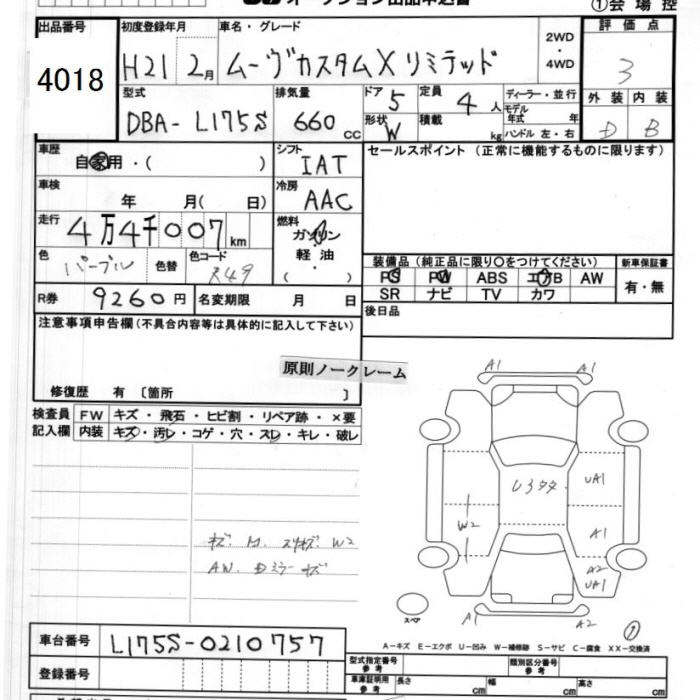 オークション出品申込書
①会場控
出品番号 4018
初度登録年月 H21 2月
車名・グレード ムーヴカスタムX リミテッド
2WD・4WD
評価点 3
外装 D 内装 B
型式 DBA-L175S
排気量 660 cc
ドア 5 定員 4 人
形状 W 積載 kg
ディーラー・並行
モデル年式 年
ハンドル 左・右
車歴 自家用・( )
シフト IAT
セールスポイント (正常に機能するものに限ります)
車検 年 月( 日)
冷房 AAC
走行 4万4千007 km
燃料 ガソリン 軽油 ・ ( )
色 パープル 色替 色コード R49
装備品 (純正品に限り〇をつけてください)
PS PW ABS エアB AW
SR ナビ TV カワ
新車保証書 有・無
R券 9260 円 名変期限 月 日
後日品
注意事項申告欄 (不具合内容等は具体的に記入して下さい)
原則ノークレーム
修復歴 有 〔箇所 〕
検査員記入欄
FW キズ・飛石・ヒビ割・リペア跡・×要
内装 キズ・汚レ・コゲ・穴・スレ・キレ・破レ
A1 A1
UA1
W2 A1
A2
UA1
A1 A2
スペア
①
W2
AW. Dミラーキズ
A-キズ E-エクボ U-凹み W-補修跡 S-サビ C-腐食 XX-交換済
車台番号 L175S-0210757
登録番号
型式指定番号 参考
類別区分番号 参考
車庫証明用 参考 長さ cm 幅 cm 高さ cm